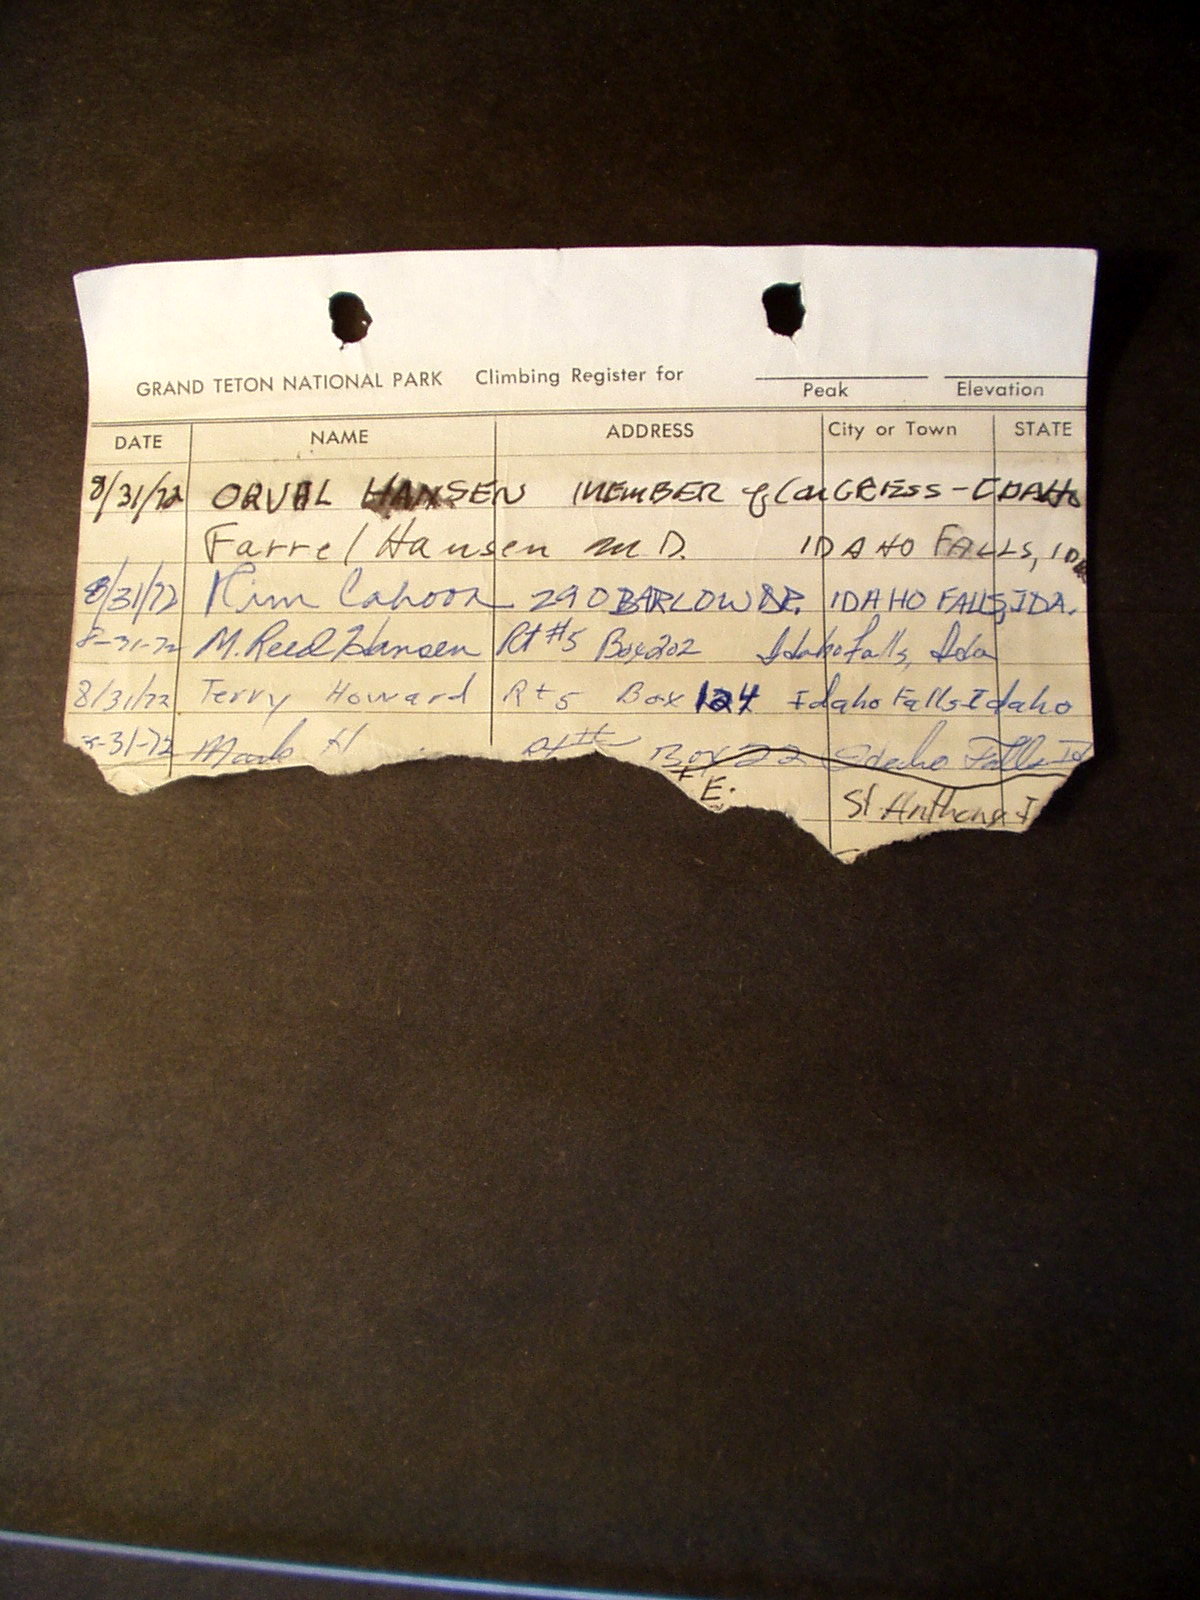 GRAND TETON NATIONAL PARK Climbing Register for
Peak Elevation
DATE NAME ADDRESS City or Town STATE
8/31/72 ORVAL HANSEN MEMBER of CONGRESS - IDAHO
Farrel Hansen M D. IDAHO FALLS, IDA
8/31/72 Kim Cahoon 290 BARLOW DR. IDAHO FALLS, IDA.
8-31-72 M. Reed Hansen Rt #5 Box 202 Idaho Falls, Ida
8/31/72 Terry Howard Rt 5 Box 124 Idaho Falls Idaho
8-31-72 Mark H Box 22 Idaho Falls Id
E. St Anthony I